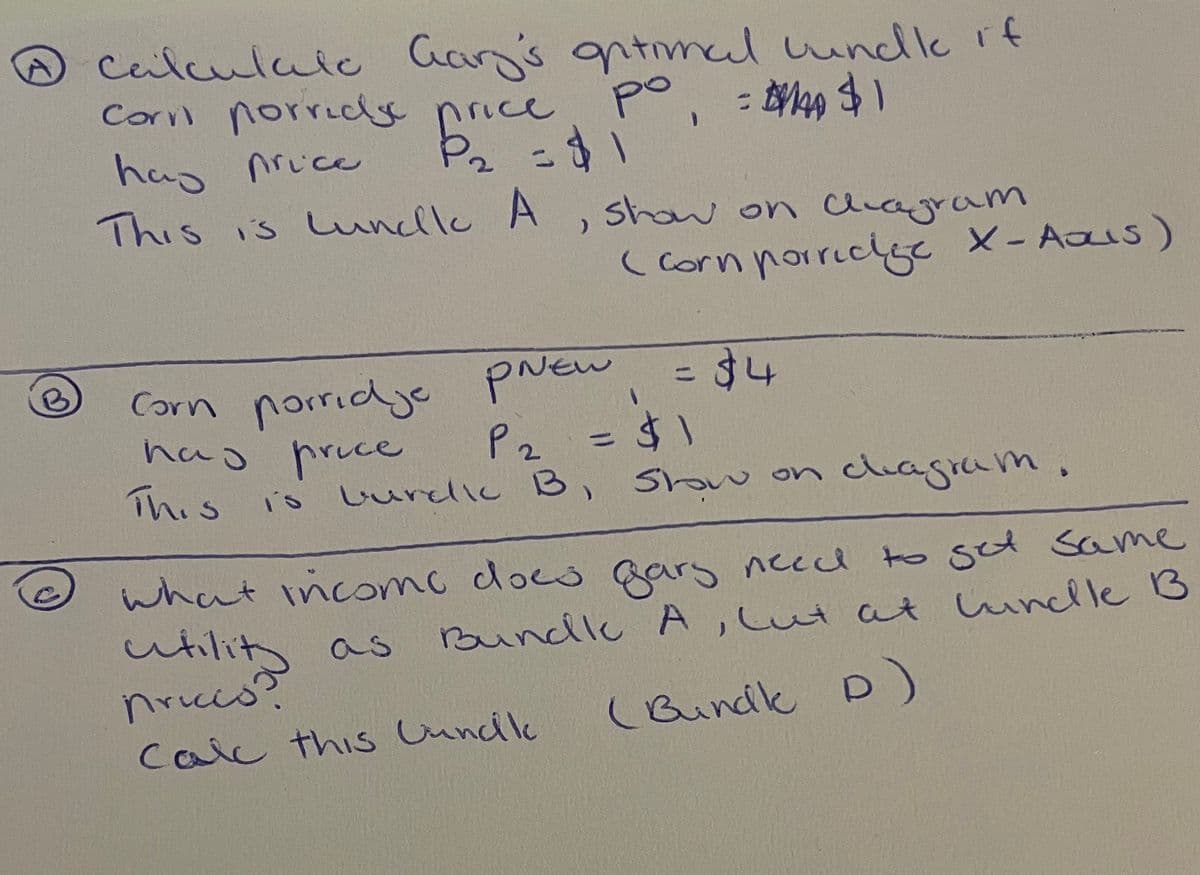 A Calculate Gary's optimal bundle if
Corn porridge price P⁰₁ = $1
has price P₂ = $1
This is bundle A, show on diagram
(Corn porridge X-Axis)
B Corn porridge Pᴺᴱᵂ₁ = $4
has price P₂ = $1
This is bundle B, Show on diagram.
C what income does gary need to get same
utility as Bundle A, but at bundle B
prices?
Calc this bundle (Bundle D)